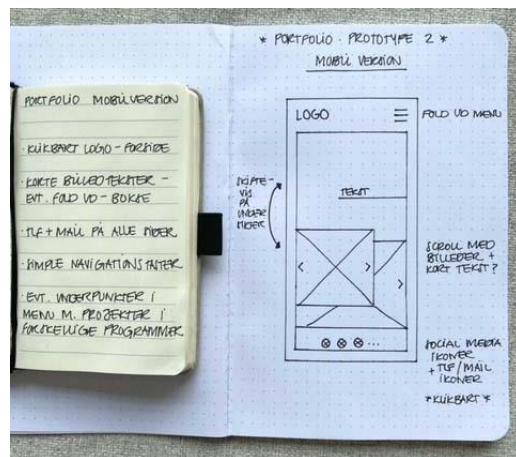 PORTFOLIO MOBIL VERSION
· KLIKBART LOGO – FORSIDE
· KORTE BILLEDTEKSTER –
EVT. FOLD UD – BOKSE
· TLF + MAIL PÅ ALLE SIDER
· SIMPLE NAVIGATIONSTASTER
· EVT. UNDERPUNKTER I
MENU M. PROJEKTER I
FORSKELLIGE PROGRAMMER
* PORTFOLIO · PROTOTYPE 2 *
MOBIL VERSION
LOGO
FOLD UD MENU
SKIFTE-
VIS
PÅ
UNDER
SIDER
TEKST
SCROLL MED
BILLEDER +
KORT TEKST?
SOCIAL MEDIA
IKONER
+ TLF/MAIL
IKONER
*KLIKBART*